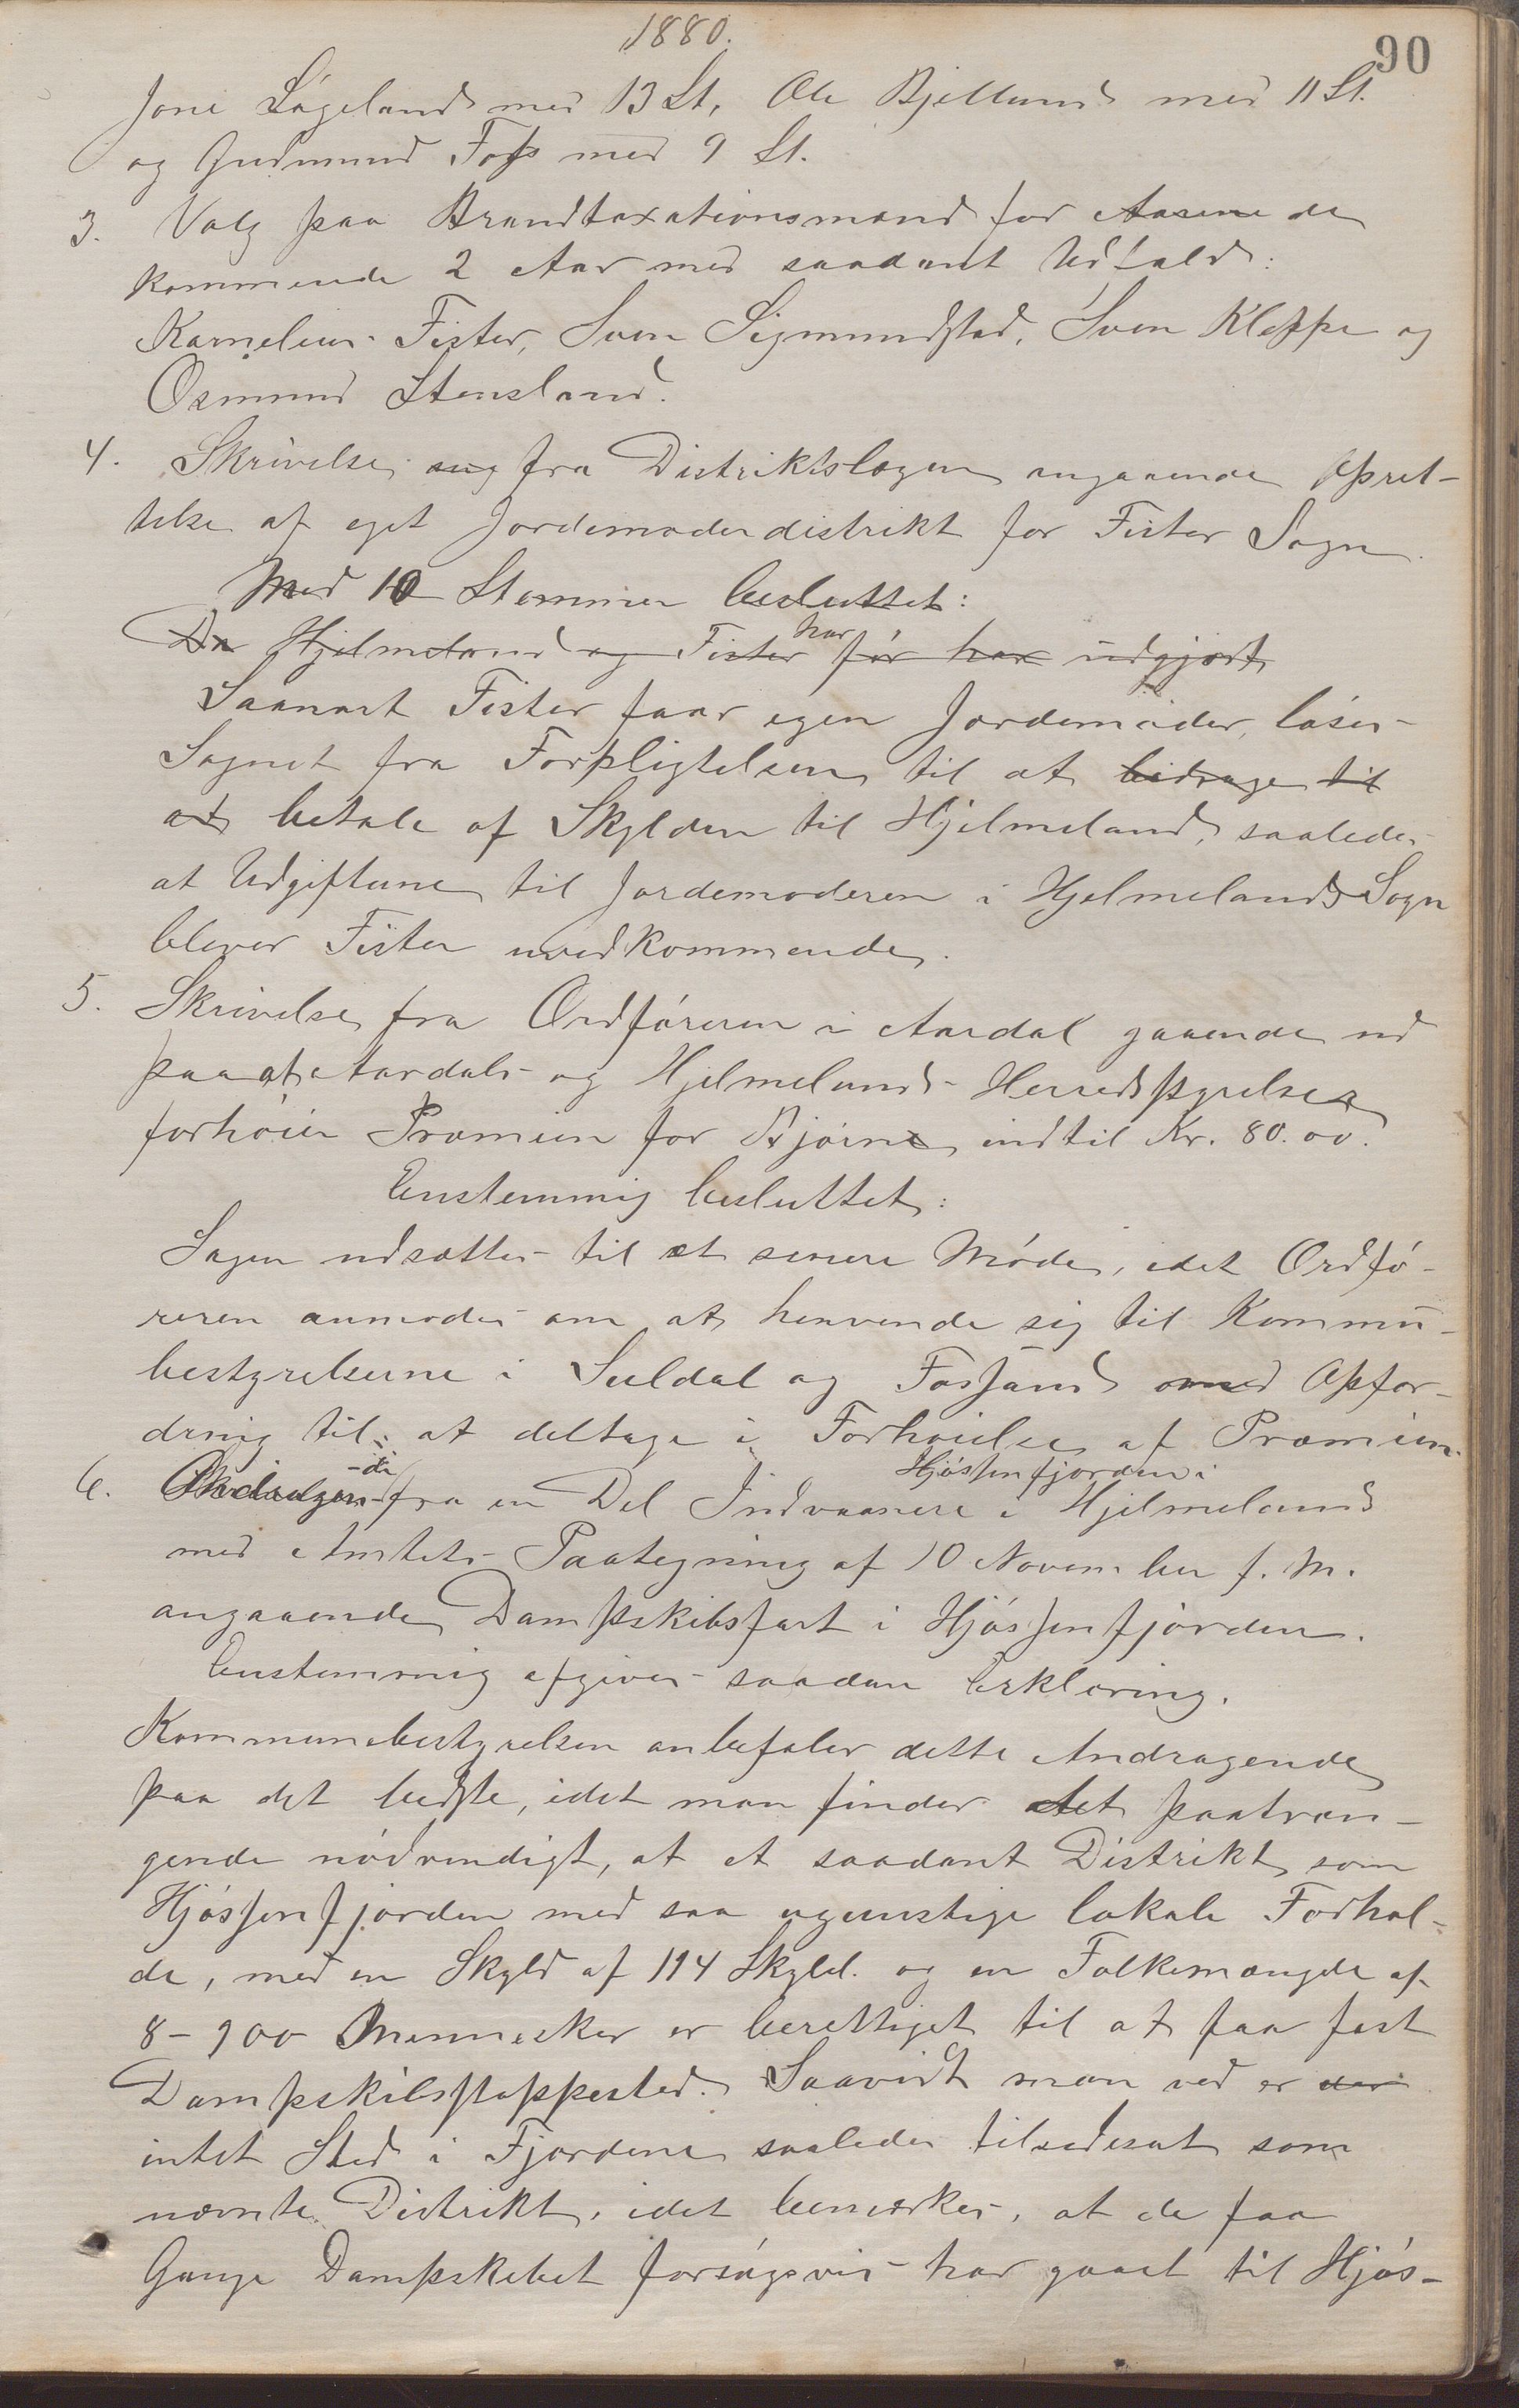 1880.
90
Jone Lågeland med 13 St, Ole Bjelland med 11 St.
og Gudmund Foss med 9 St.
3. Valg paa Brandtaxationsmænd for Aarene de
kommende 2 Aar med saadant Udfald:
Kornelius Fister, Sven Sigmundstad, Sven Kleppe og
Osmund Stensland.
4. Skrivelse ang fra Distriktslægen angaaende Opret-
telse af eget Jordemoderdistrikt for Fister Sogn.
Med 10 Stemmer besluttet:
har
Da Hjelmeland og Fister før har udgjort
Saasnart Fister faar egen Jordemoder, løses
Sognet fra Forpligtelsen til at bidrage til
at betale af Skylden til Hjelmeland, saaledes
at Udgifterne til Jordemoderen i Hjelmelands Sogn
bliver Fister uvedkommende.
5. Skrivelse fra Ordføreren i Aardal gaaende ud
paa at Aardals og Hjelmelands Herredsstyrelser
forhøier Præmien for Bjørne indtil Kr. 80.00.
Enstemmig besluttet:
Sagen udsættes til et senere Møde, idet Ordfø-
reren anmodes om at henvende sig til Kommu-
bestyrelserne i Suldal og Fossand med Opfor-
dring til at deltage i Forhøielse af Præmien.
-de Hjøsenfjorden i
6. Andragen fra en Del Indvaanere i Hjelmeland
med Amtets Paategning af 10 November f. M.
angaaende Dampskibsfart i Hjøsenfjorden.
Enstemmig afgives saadan Erklæring.
Kommunebestyrelsen anbefaler dette Andragende
paa det bedste, idet man finder det paatræn-
gende nødvendigt, at et saadant Distrikt som
Hjøsenfjorden med saa ugunstige lokale Forhol-
de, med en Skyld af 114 Skyld. og en Folkemængde af
8-900 Mennesker er berettiget til at faa fast
Dampskibsstoppested. Saavidt man ved er der
intet Sted i Fjordene saaledes tilsidesat som
nævnte Distrikt, idet bemærkes, at de faa
Gange Dampskibet forsøgsvis har gaaet til Hjøs-